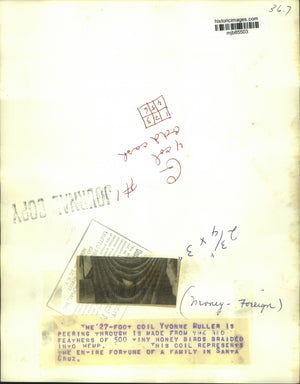 36.7
historicimages.com
mjb85503
4 col
odd cash
#1
JOURNAL COPY
2 3/4 x 3
(Money - Foreign)
THE 27-FOOT COIL YVONNE RULLER IS
PEERING THROUGH IS MADE FROM THE RED
FEATHERS OF 500 TINY HONEY BIRDS BRAIDED
INTO HEMP. THIS COIL REPRESENTS
THE ENTIRE FORTUNE OF A FAMILY IN SANTA
CRUZ.